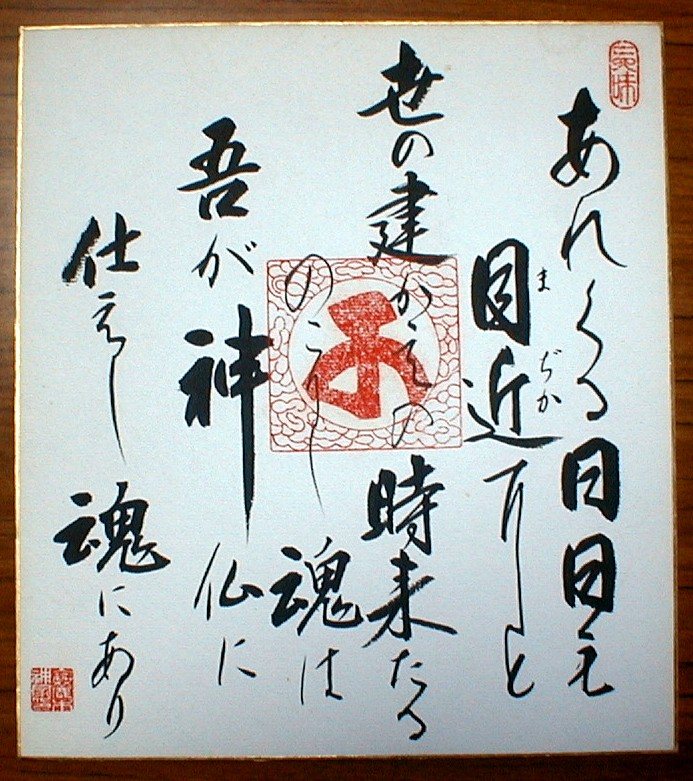 あれくる日日も
目近 しと
まぢか
世の建かえの時来たる
のこりし魂は
吾が神仏に
仕えし魂にあり